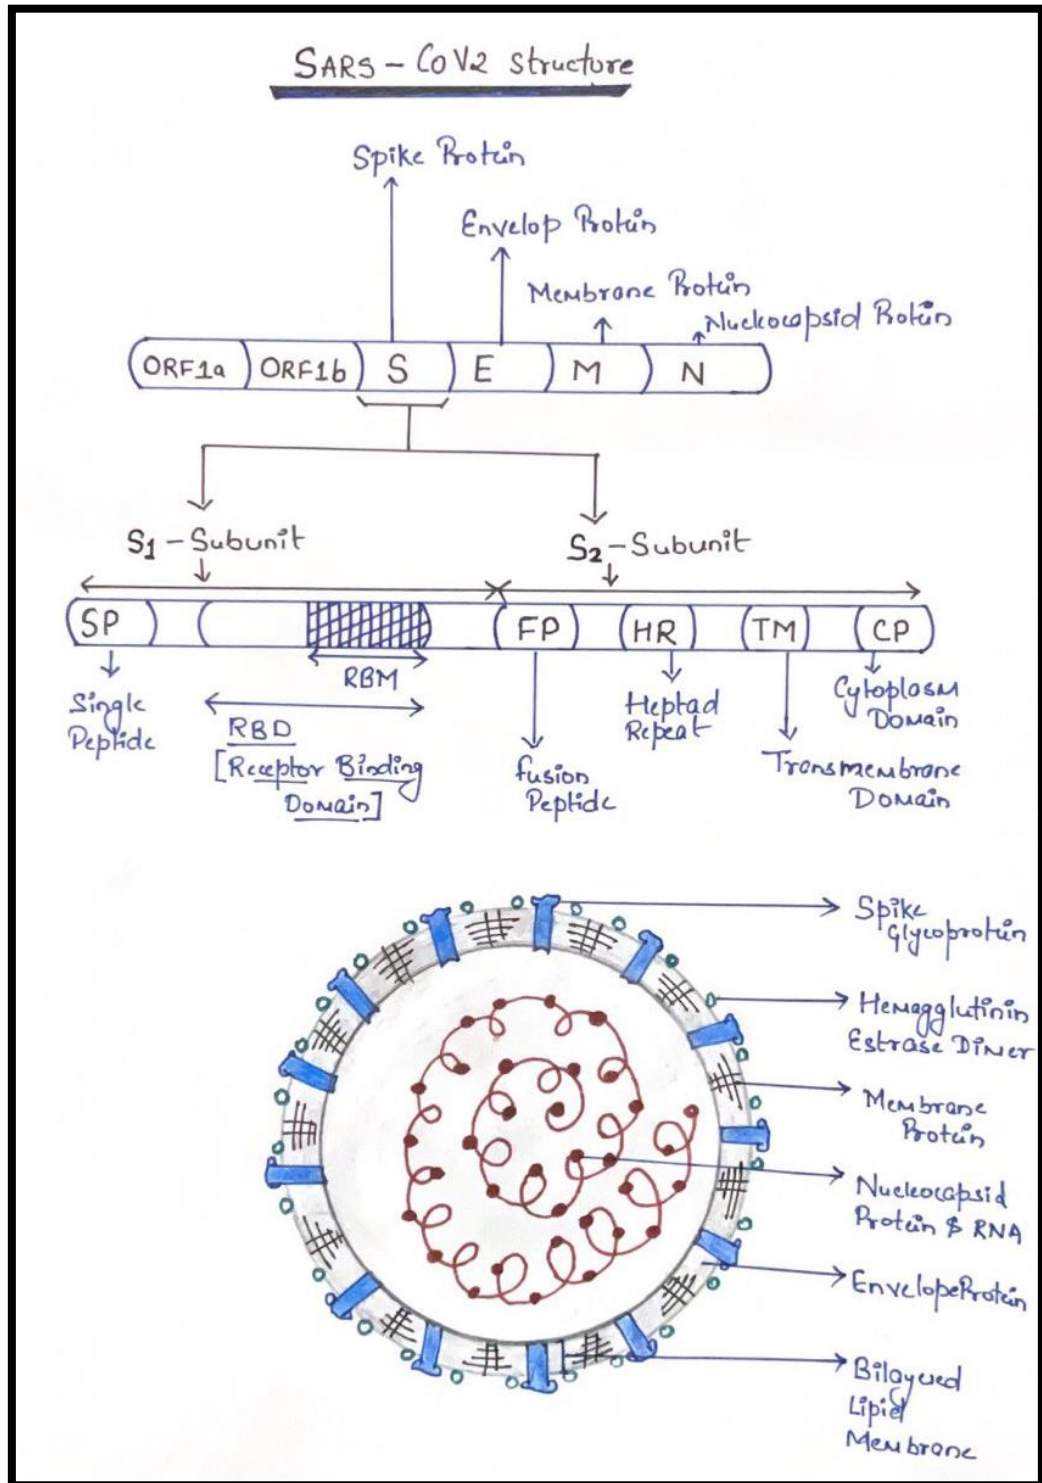 SARS - CoV2 structure
Spike Protein
Envelop Protein
Membrane Protein
Nucleocapsid Protein
ORF1a ORF1b S E M N
S1 - Subunit
S2 - Subunit
SP FP HR TM CP
RBM
Single
Peptide
RBD
[Receptor Binding
Domain]
fusion
Peptide
Heptad
Repeat
Transmembrane
Domain
Cytoplasm
Domain
Spike
Glycoprotein
Hemagglutinin
Estrase Dimer
Membrane
Protein
Nucleocapsid
Protein & RNA
Envelope Protein
Bilayered
Lipid
Membrane